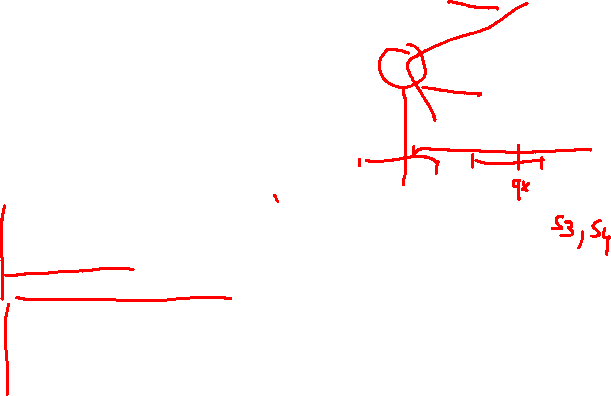 qx
S3, S4